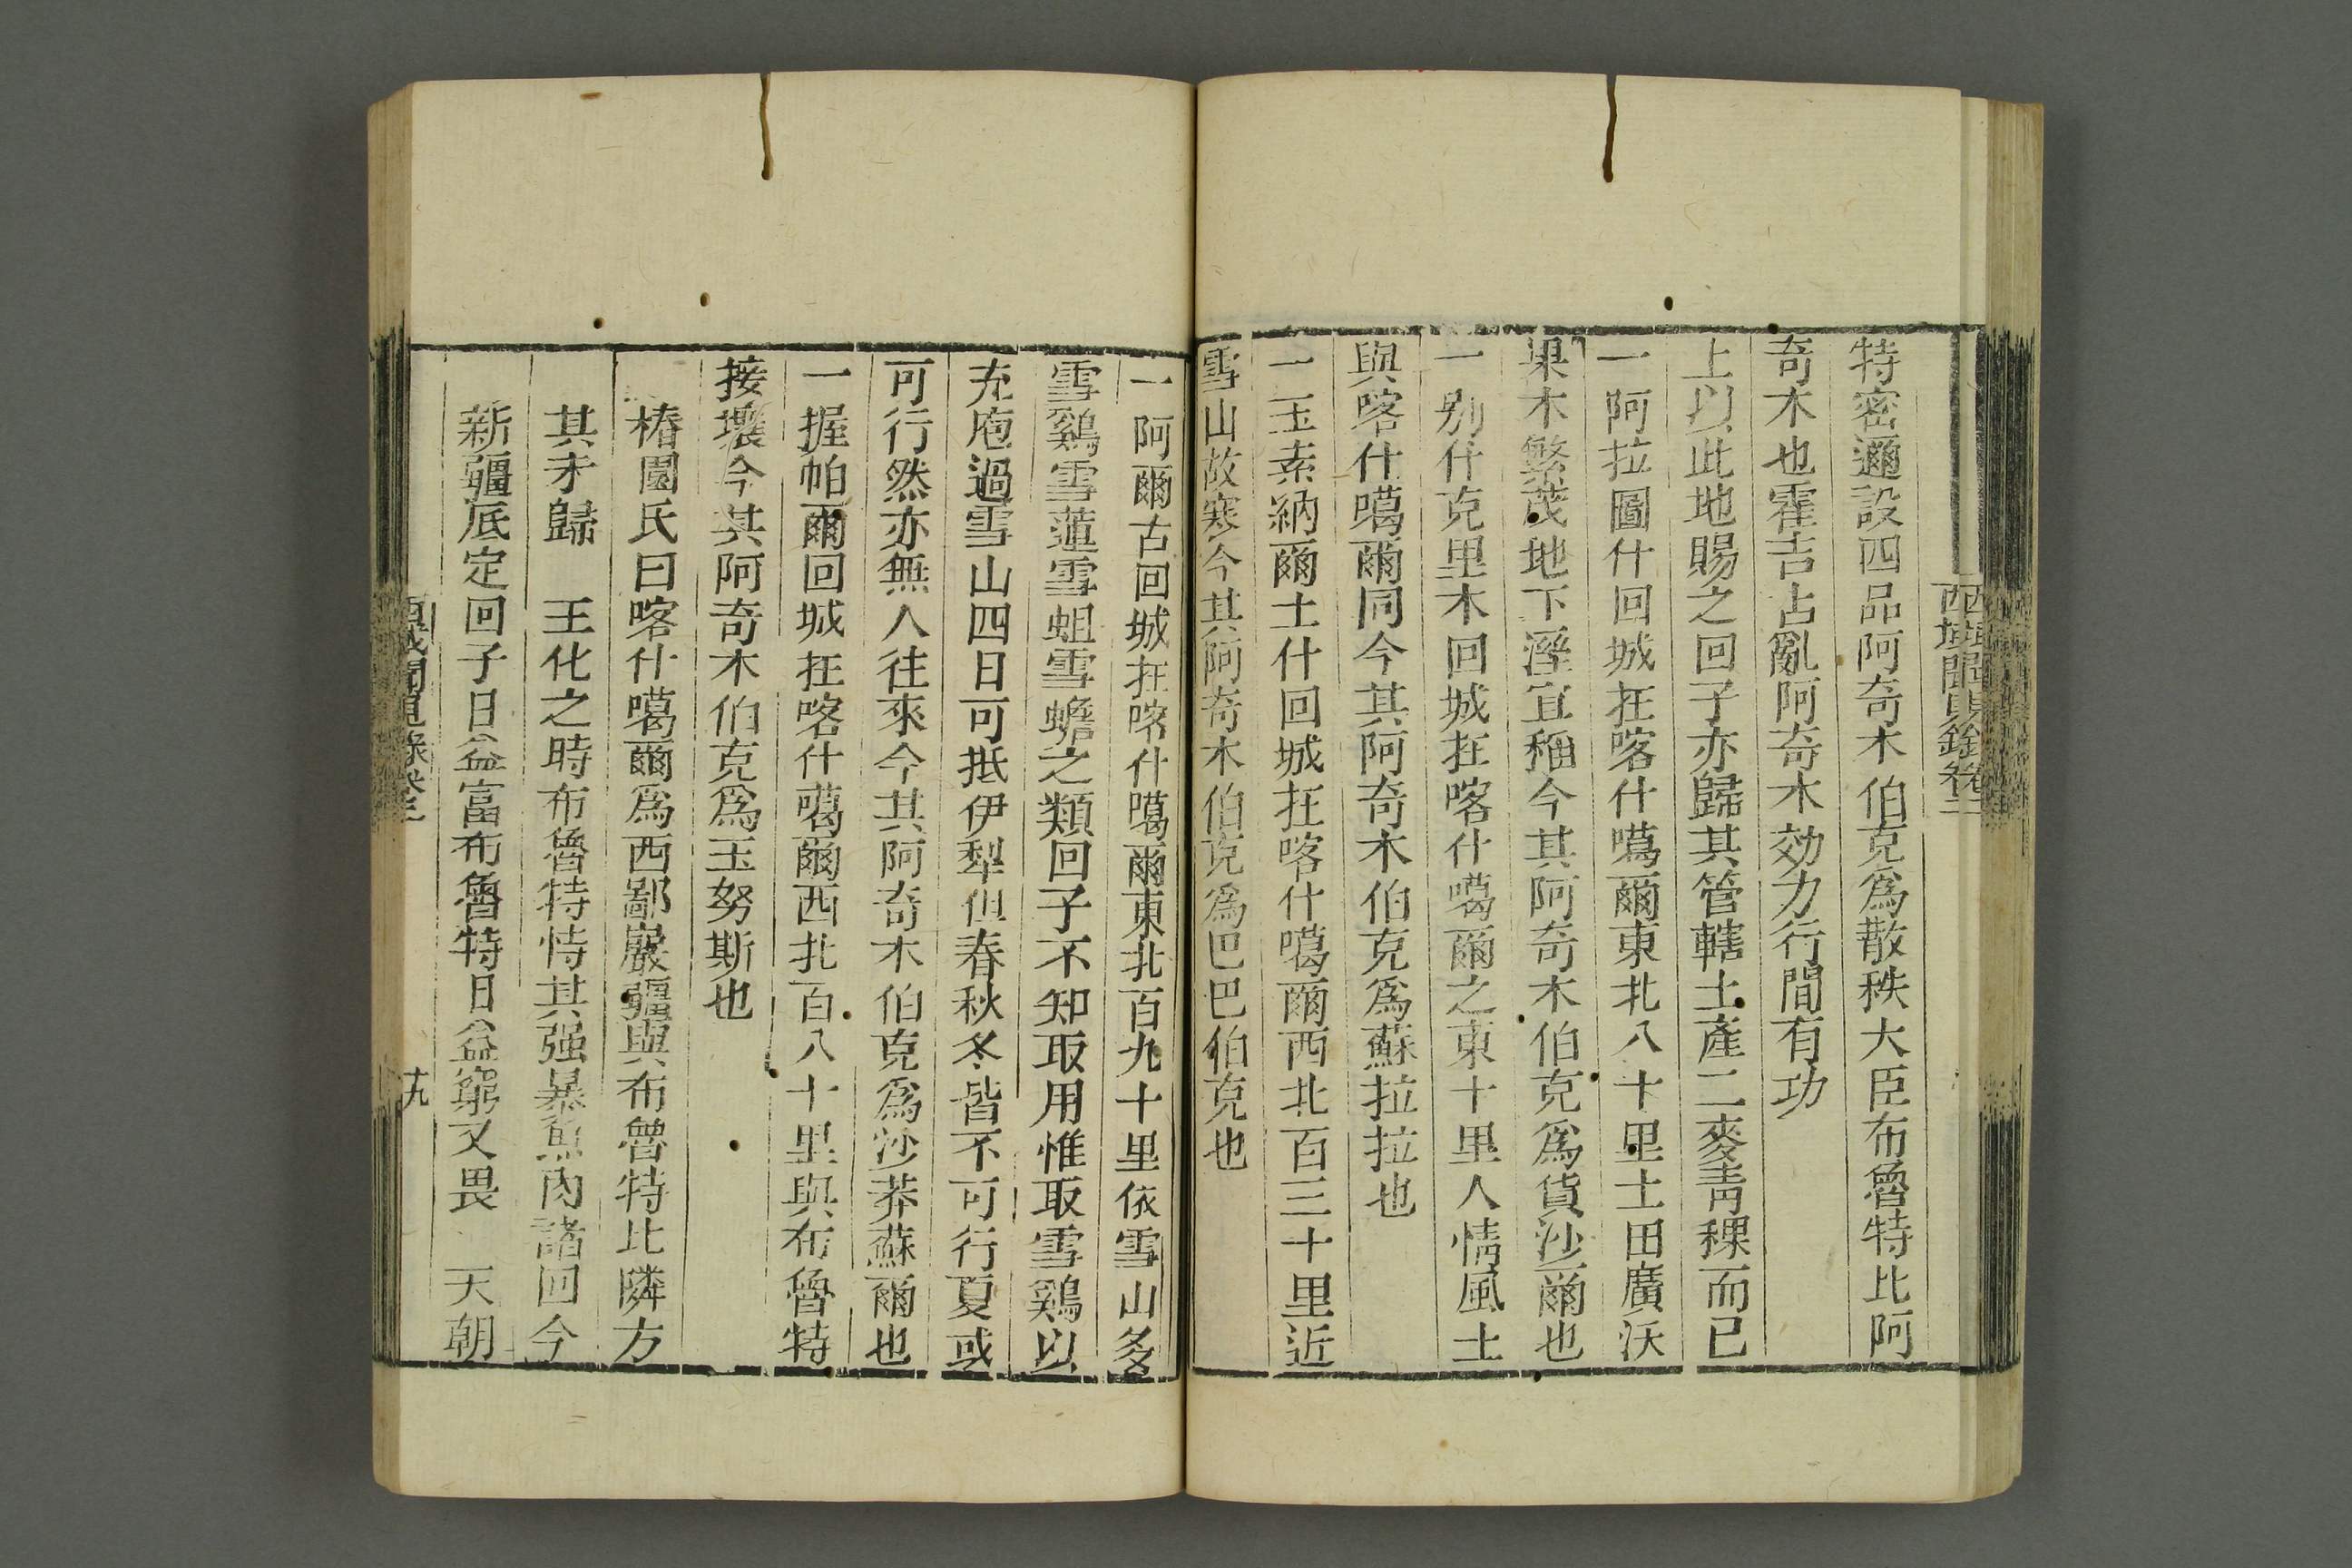 西域聞見錄卷二
特密邇設四品阿奇木伯克爲散秩大臣布魯特比阿
奇木也霍吉占亂阿奇木効力行間有功
上以此地賜之回子亦歸其管轄土產二麥靑稞而已
一阿拉圖什回城在喀什噶爾東北八十里土田廣沃
果木繁茂地下溼宜稻今其阿奇木伯克爲貨沙爾也
一別什克里木回城在喀什噶爾之東十里人情風土
與喀什噶爾同今其阿奇木伯克爲蘇拉拉也
一玉素納爾土什回城在喀什噶爾西北百三十里近
雪山故寒今其阿奇木伯克爲巴巴伯克也
一阿爾古回城在喀什噶爾東北百九十里依雪山多
雪鷄雪蓮雪蛆雪蟾之類回子不知取用惟取雪鷄以
充庖過雪山四日可抵伊犁但春秋冬皆不可行夏或
可行然亦無人往來今其阿奇木伯克爲沙莽蘇爾也
一握帕爾回城在喀什噶爾西北百八十里與布魯特
接壤今其阿奇木伯克爲玉努斯也
椿園氏曰喀什噶爾爲西鄙嚴疆與布魯特比隣方
其未歸　王化之時布魯特恃其强暴魚肉諸回今
新疆底定回子日益富布魯特日益窮又畏　天朝
西域聞見錄卷二
十九